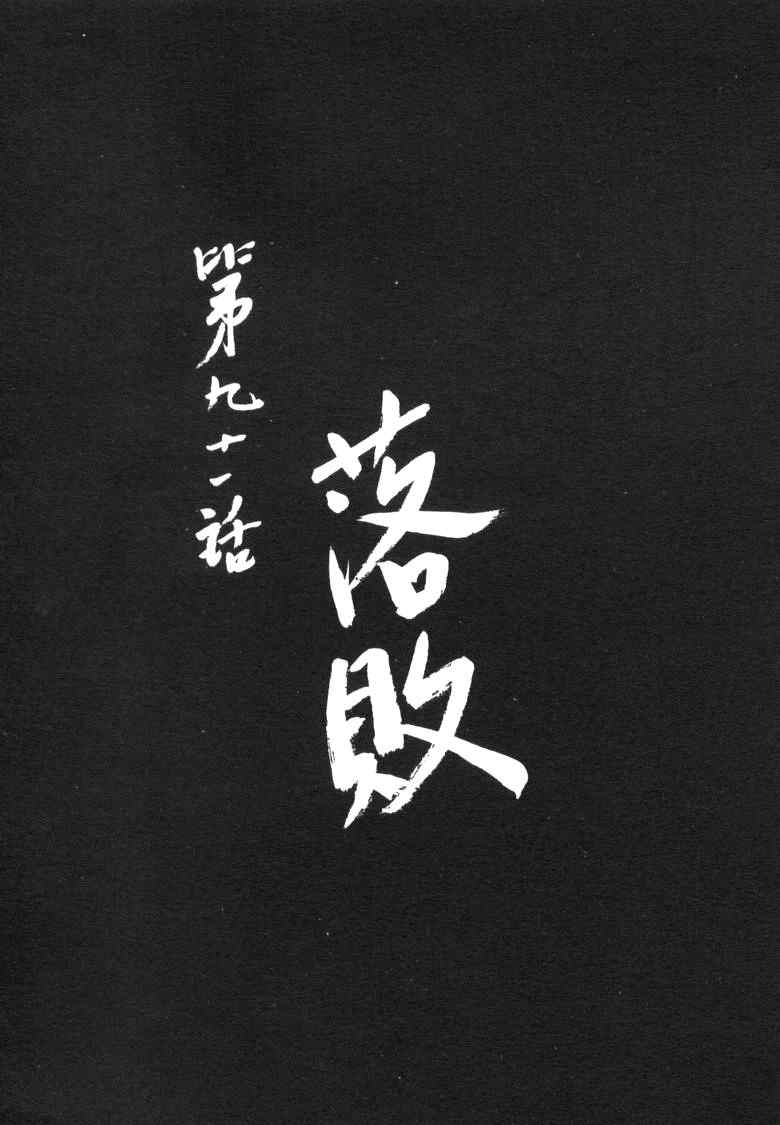 落敗
第九十一話